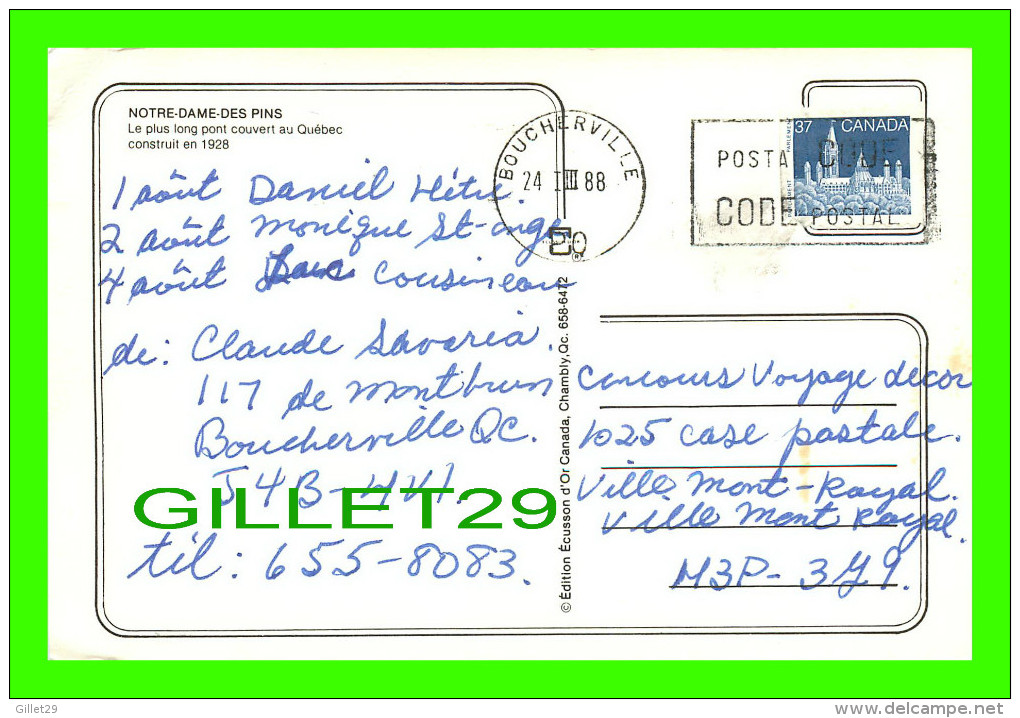 NOTRE-DAME-DES PINS
Le plus long pont couvert au Québec
construit en 1928
1 août Daniel Hétu
2 août Monique St-onge
4 août Cousineau
de: Claude Savaria.
117 de Montbrun
Boucherville QC.
J4B-
GILLET29
tél: 655-8083.
BOUCHERVILLE
24 III 88
37 CANADA
PARLEMENT
POSTAL CODE
CODE POSTAL
© Édition Écusson d'Or Canada, Chambly, Qc. 658-6472
Concours Voyage décor
1025 case postale.
Ville Mont-Royal.
Ville Mont Royal.
H3P-3G9.
Gillet29
www.delcampe.net